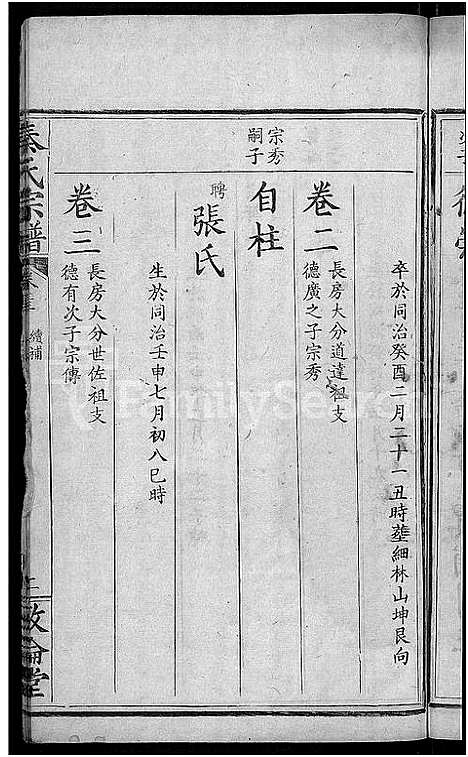 卒於同治癸酉二月二十一丑時塟細林山坤艮向
卷二
長房大分道達祖支
德廣之子宗秀
宗秀
嗣子
自柱
聘
張氏
生於同治壬申七月初八巳時
卷三
長房大分世佐祖支
德有次子宗傳
秦氏宗譜
續補
敦倫堂
FamilySearch